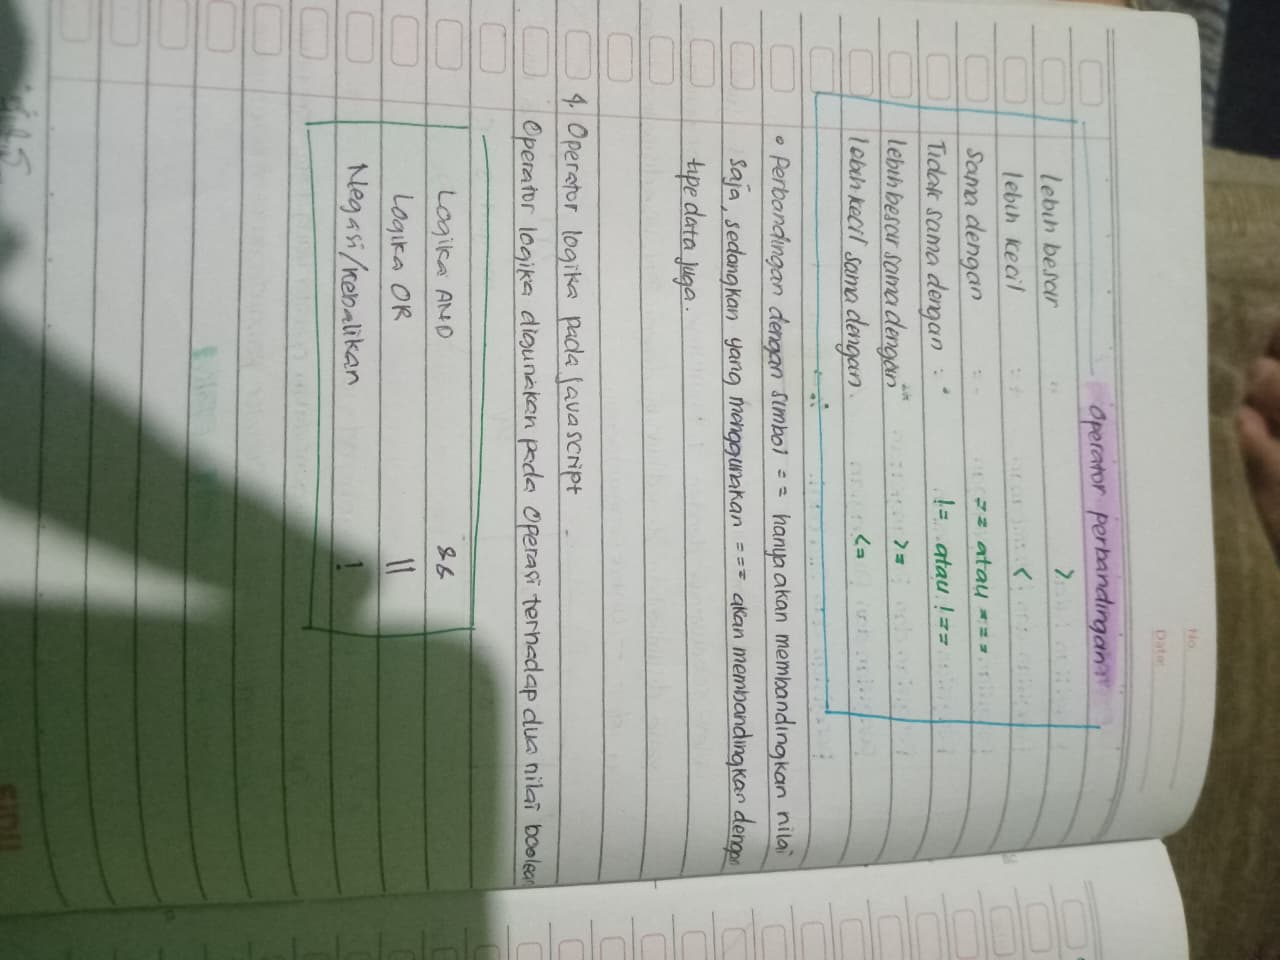 No.
Date:
Operator perbandingan
lebih besar >
lebih kecil <
Sama dengan == atau ===
Tidak sama dengan : != atau !==
lebih besar sama dengan >=
lebih kecil sama dengan <=
• Perbandingan dengan simbol == hanya akan membandingkan nilai
saja, sedangkan yang menggunakan === akan membandingkan dengan
tipe data juga.
4. Operator logika pada javascript
Operator logika digunakan pada operasi terhadap dua nilai boolean
Logika AND &&
Logika OR ||
Negasi/kebalikan !